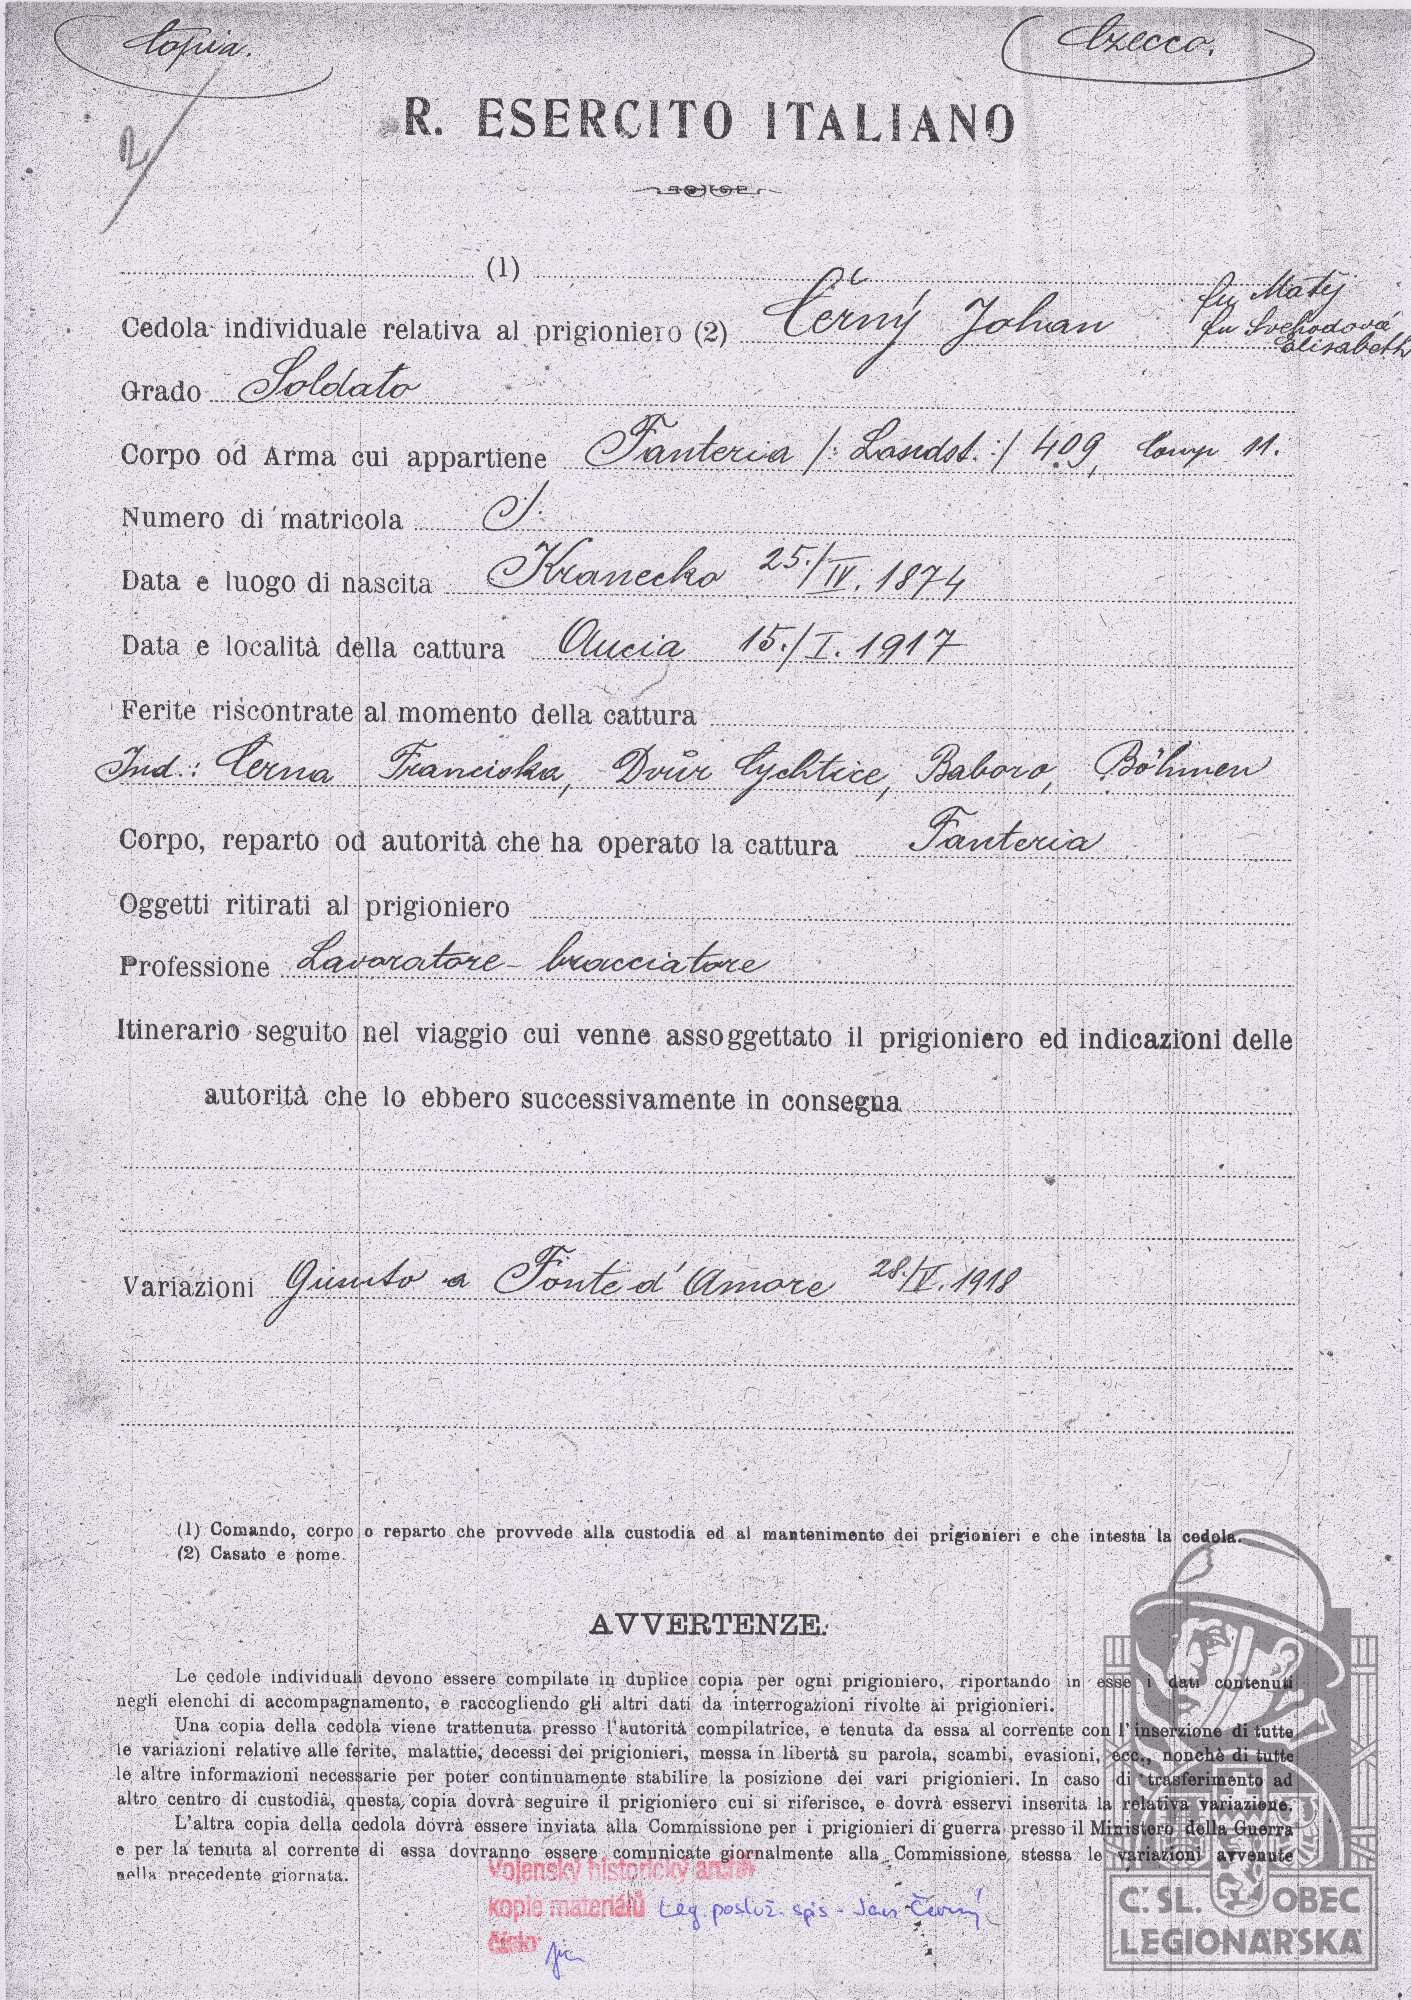 Copia.
Czecco.
2/
R. ESERCITO ITALIANO
(1)
fu Matěj
Cedola individuale relativa al prigioniero (2) Černý Johan fu Svehodová
Elisabeth
Grado Soldato
Corpo od Arma cui appartiene Fanteria /: Landst. :/ 409, Comp 11.
Numero di matricola /.
Data e luogo di nascita Kranecko 25./IV. 1874
Data e località della cattura Aucia 15./I. 1917
Ferite riscontrate al momento della cattura
Ind.: Černa Franciska, Dvůr Cychtice, Baboro, Böhmen
Corpo, reparto od autorità che ha operato la cattura Fanteria
Oggetti ritirati al prigioniero
Professione Lavoratore - bracciatore
Itinerario seguito nel viaggio cui venne assoggettato il prigioniero ed indicazioni delle
autorità che lo ebbero successivamente in consegna
Variazioni Giunto a Fonte d'Amore 28./V. 1918
(1) Comando, corpo o reparto che provvede alla custodia ed al mantenimento dei prigionieri e che intesta la cedola.
(2) Casato e nome.
AVVERTENZE.
Le cedole individuali devono essere compilate in duplice copia per ogni prigioniero, riportando in esse i dati contenuti
negli elenchi di accompagnamento, e raccogliendo gli altri dati da interrogazioni rivolte ai prigionieri.
Una copia della cedola viene trattenuta presso l'autorità compilatrice, e tenuta da essa al corrente con l'inserzione di tutte
le variazioni relative alle ferite, malattie, decessi dei prigionieri, messa in libertà su parola, scambi, evasioni, ecc., nonchè di tutte
le altre informazioni necessarie per poter continuamente stabilire la posizione dei vari prigionieri. In caso di trasferimento ad
altro centro di custodia, questa copia dovrà seguire il prigioniero cui si riferisce, e dovrà esservi inserita la relativa variazione.
L'altra copia della cedola dovrà essere inviata alla Commissione per i prigionieri di guerra presso il Ministero della Guerra
e per la tenuta al corrente di essa dovranno essere comunicate giornalmente alla Commissione stessa le variazioni avvenute
nella precedente giornata.
Vojenský historický archiv
kopie materiálů Leg. posluž. spis - Jan Černý
číslo
Č. SL. OBEC
LEGIONÁŘSKÁ